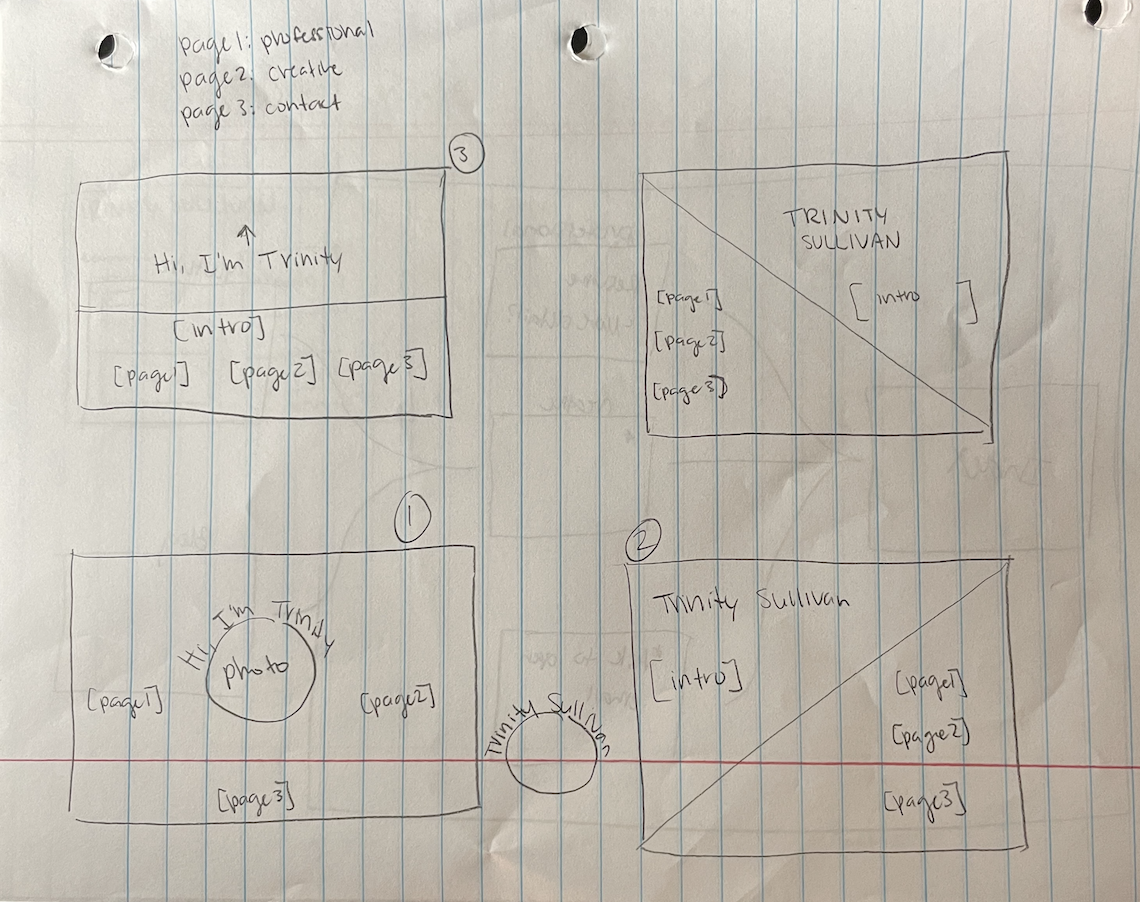 page 1: professional
page 2: creative
page 3: contact
3
Hi, I'm Trinity
[intro]
[page1] [page2] [page3]
TRINITY
SULLIVAN
[intro]
[page1]
[page2]
[page3]
1
Hi, I'm Trinity
photo
[page1]
[page2]
[page3]
Trinity Sullivan
2
Trinity Sullivan
[intro]
[page1]
[page2]
[page3]